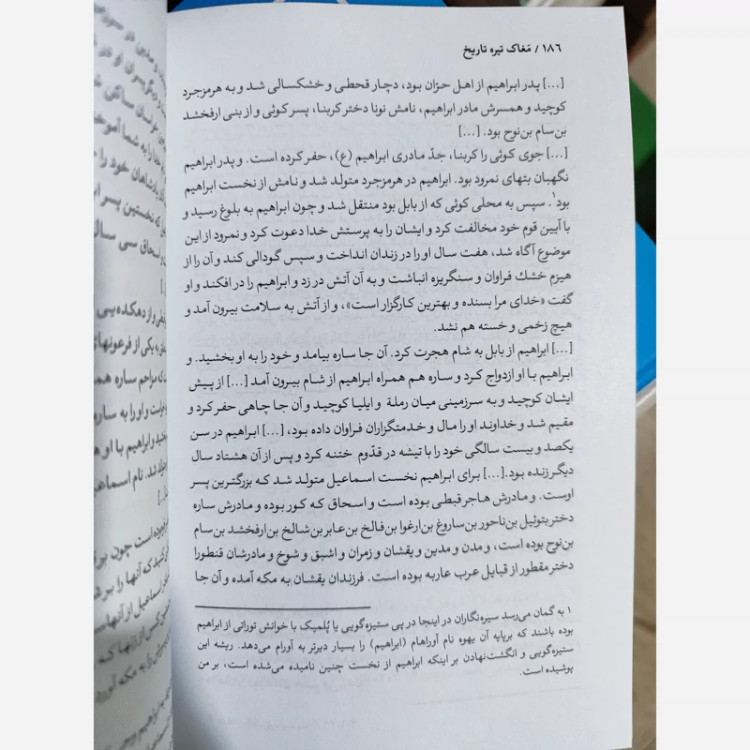 ۱۸۶ / مَغاک تیره تاریخ
[...] پدر ابراهیم از اهل حرّان بود، دچار قحطی و خشکسالی شد و به هرمزجرد
کوچید و همسرش مادر ابراهیم، نامش نونا دختر کربنا، پسر کوثی و از بنی ارفخشد
بن‌سام بن‌نوح بود. [...]
[...] جوی کوثی را کربنا، جدّ مادری ابراهیم (ع)، حفر کرده است. و پدر ابراهیم
نگهبان بتهای نمرود بود. ابراهیم در هرمزجرد متولد شد و نامش از نخست ابراهیم
بود۱. سپس به محلی کوثی که از بابل بود منتقل شد و چون ابراهیم به بلوغ رسید و
با آیین قوم خود مخالفت کرد و ایشان را به پرستش خدا دعوت کرد و نمرود از این
موضوع آگاه شد، هفت سال او را در زندان انداخت و سپس گودالی کند و آن را از
هیزم خشك فراوان و سنگریزه انباشت و به آن آتش در زد و ابراهیم را در افکند و او
گفت «خدای مرا بسنده و بهترین کارگزار است»، و از آتش به سلامت بیرون آمد و
هیچ زخمی و خسته هم نشد.
[...] ابراهیم از بابل به شام هجرت کرد. آن جا ساره بیامد و خود را به او بخشید. و
ابراهیم با او ازدواج کرد و ساره هم همراه ابراهیم از شام بیرون آمد [...] از پیش
ایشان کوچید و به سرزمینی میان رملة و ایلیا کوچید و آن جا چاهی حفر کرد و
مقیم شد و خداوند او را مال و خدمتگزاران فراوان داده بود، [...] ابراهیم در سن
یکصد و بیست سالگی خود را با تیشه در قدّوم ختنه کرد و پس از آن هشتاد سال
دیگر زنده بود.[...] برای ابراهیم نخست اسماعیل متولد شد که بزرگترین پسر
اوست. و مادرش هاجر قبطی بوده است و اسحاق که کور بوده و مادرش ساره
دختر بتوئیل بن‌ناحور بن‌ساروغ بن‌ارغوا بن‌فالخ بن‌عابر بن‌شالخ بن‌ارفخشد بن‌سام
بن‌نوح بوده است، و مدن و مدین و یقشان و زمران و اشبق و شوخ و مادرشان قنطورا
دختر مقطور از قبایل عرب عاربه بوده است. فرزندان یقشان به مکه آمده و آن جا
۱ به گمان می‌رسد سیره‌نگاران در اینجا در پی ستیزه‌گویی یا پُلمیک با خوانش توراتی از ابراهیم
بوده باشند که برپایه آن یهوه نام آوراهام (ابراهیم) را بسیار دیرتر به آورام می‌دهد. ریشه این
ستیزه‌گویی و انگشت‌نهادن بر اینکه ابراهیم از نخست چنین نامیده می‌شده است، بر من
پوشیده است.